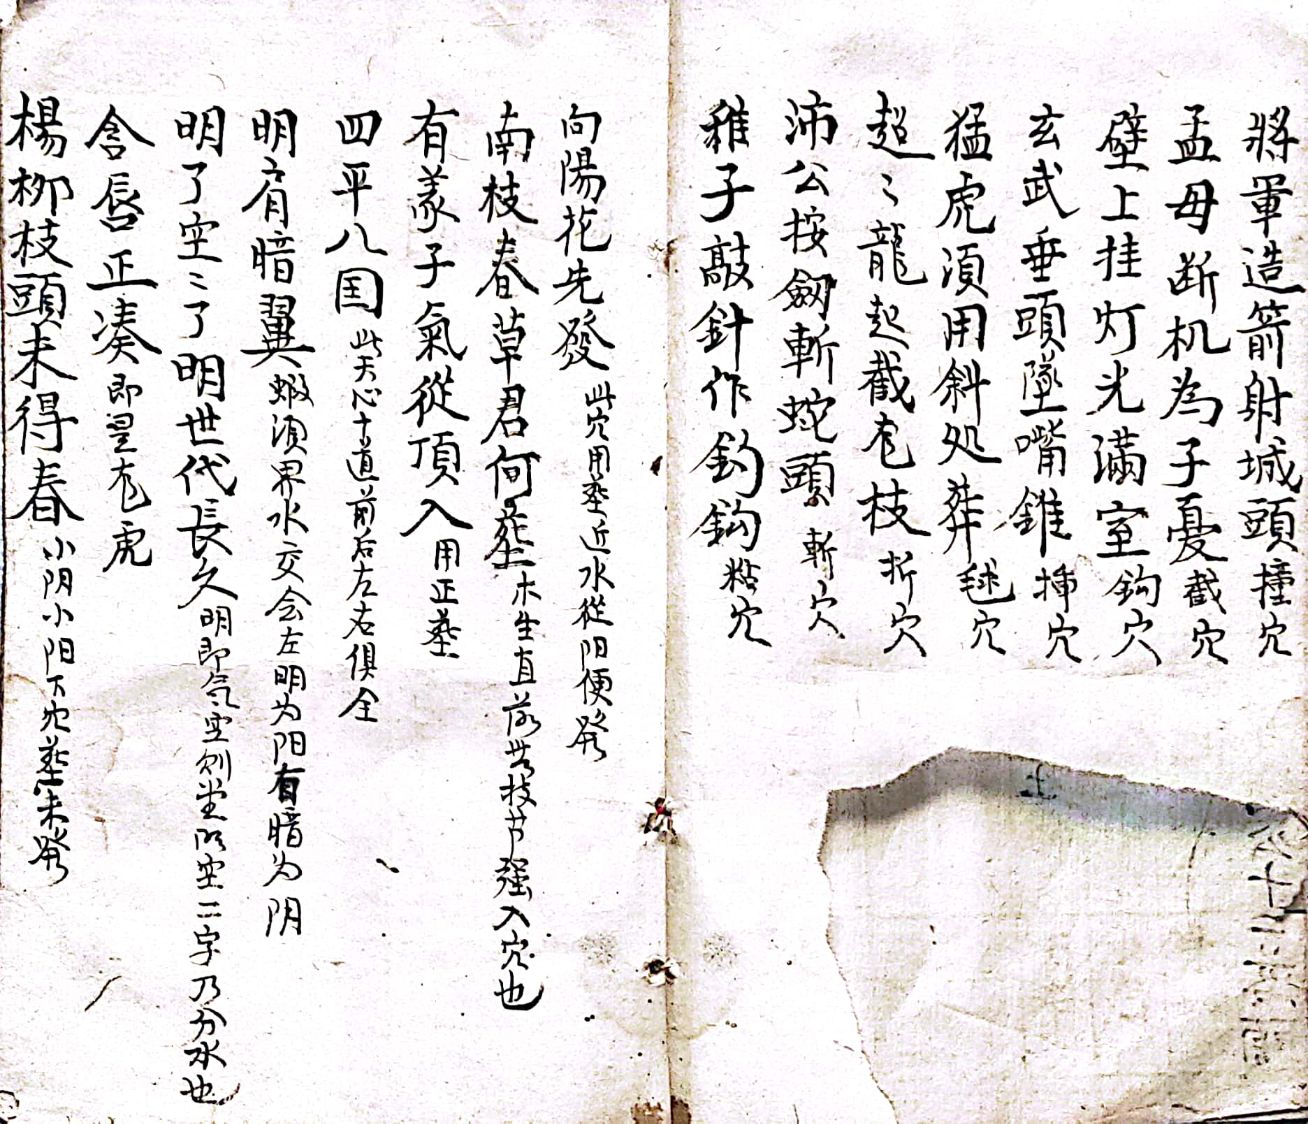 將軍造箭射城頭 撞穴
孟母断机為子憂 截穴
壁上挂灯光滿室 鈎穴
玄武垂頭墜嘴錐 挿穴
猛虎湏用斜处葬 毬穴
超〻龍起截老枝 折穴
沛公按劔斬蛇頭 斬穴
稚子敲針作釣鈎 粘穴
向陽花先發 此穴用塟近水從阳便發
南枝春草君何塟 木生直落芿枝节强入穴也
有蒙子氣從頂入 用正塟
四平八国 此天心十道前后左右俱全
明肩暗翼 蝦湏界水交会左明为阳有暗为阴
明了空〻了明世代長久 明即气空則堂明空二字乃分水也
含唇正凑 即是龙虎
楊柳枝頭未得春 小阴小阳下穴塟未發
土